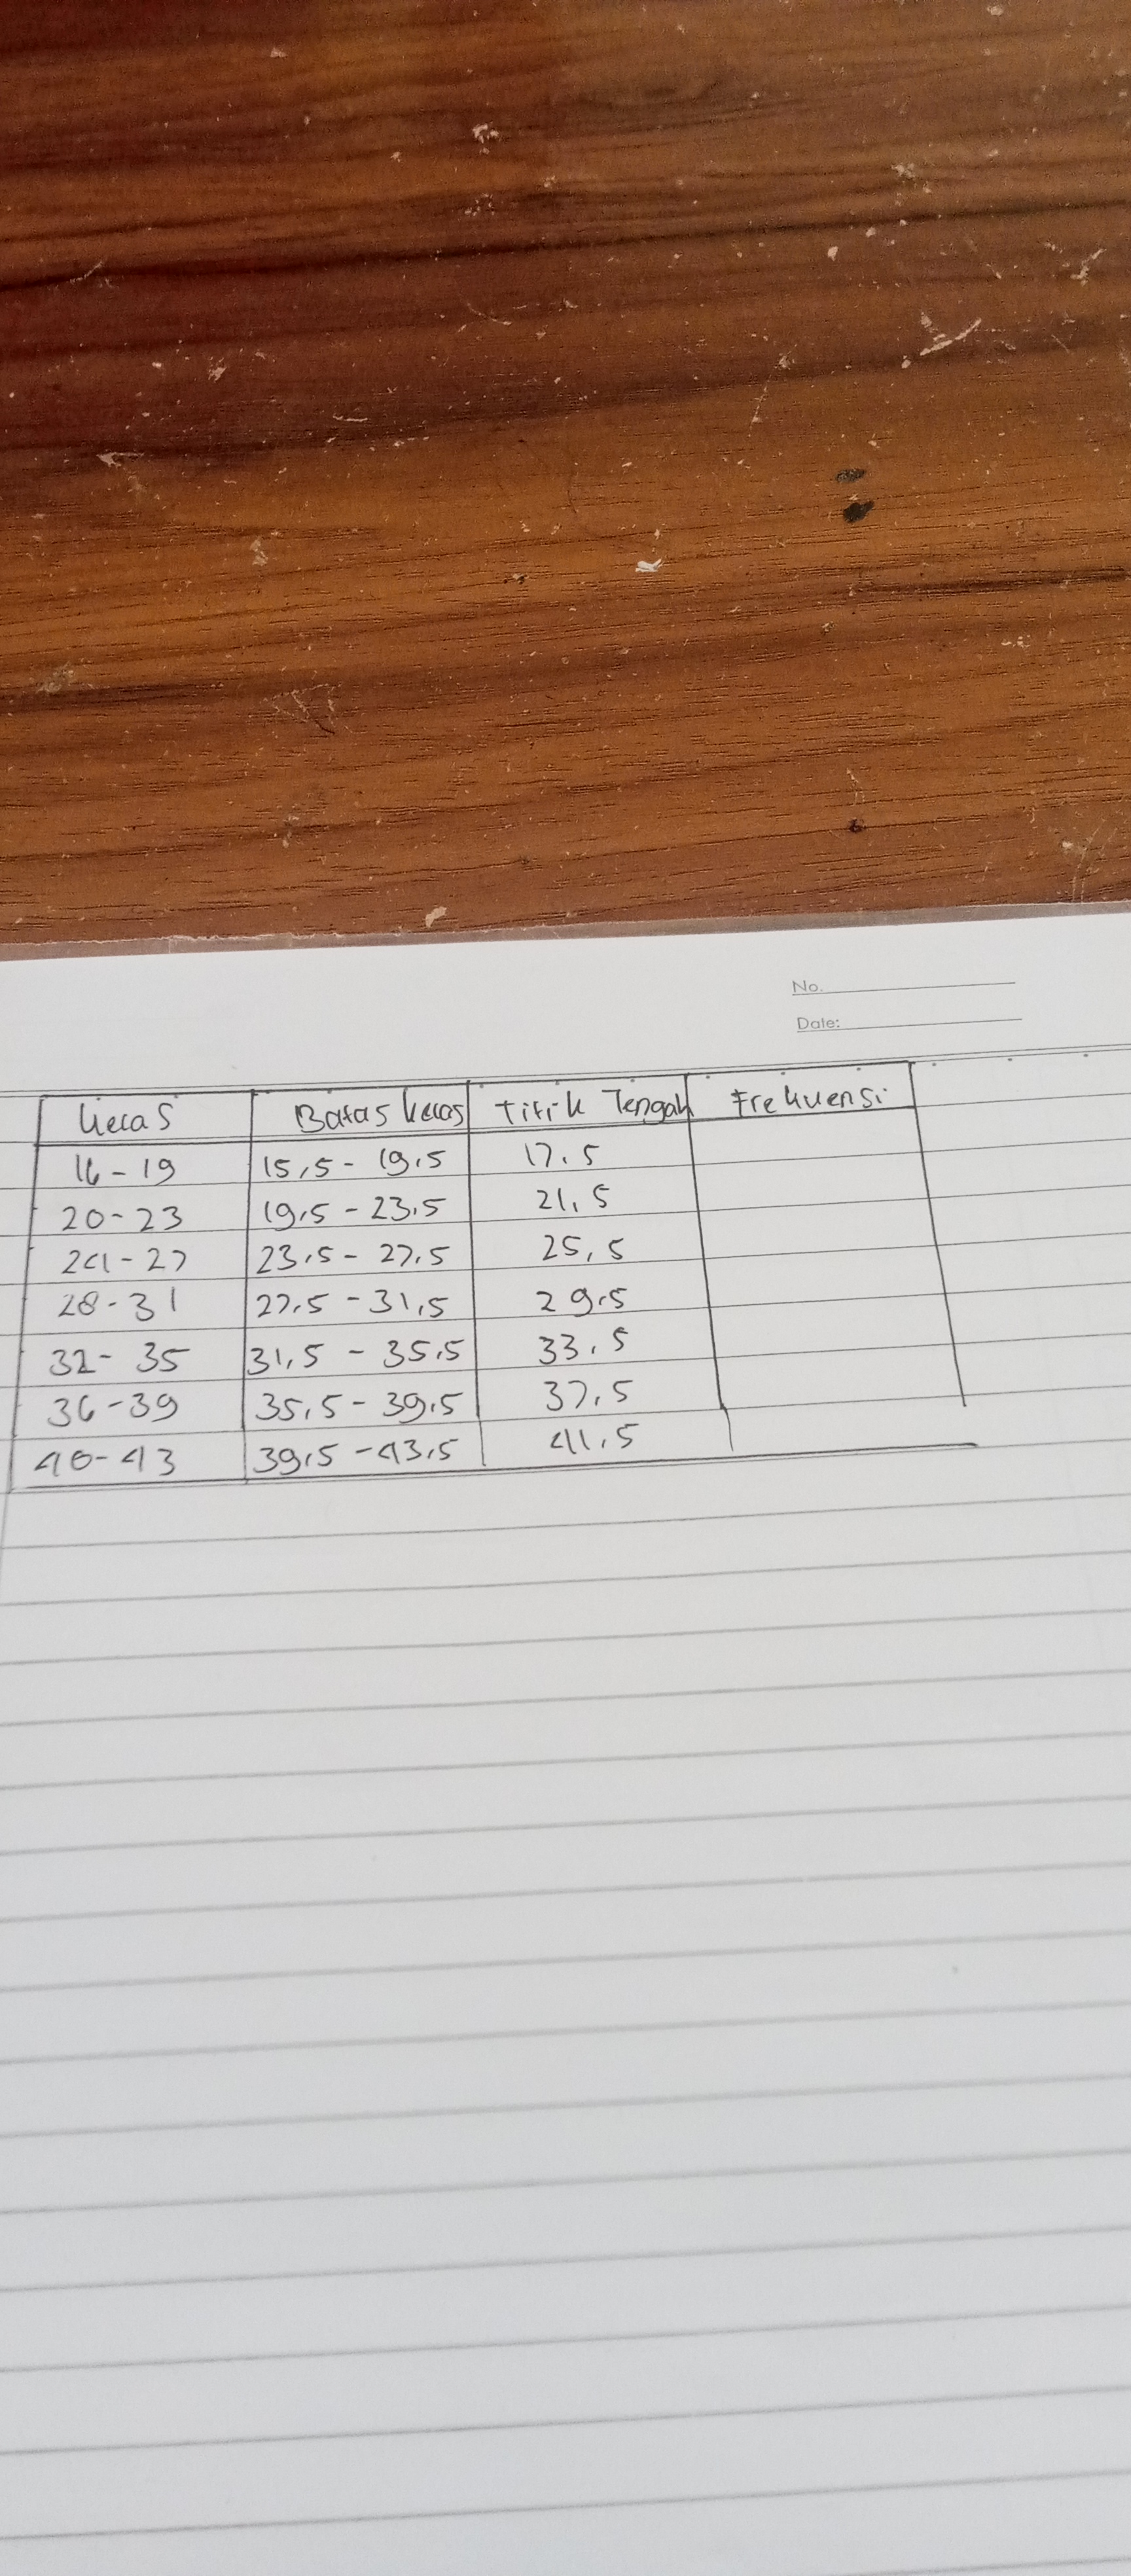 No.
Date:
Kelas Batas kelas Titik Tengah Frekuensi
16-19 15,5-19,5 17,5
20-23 19,5-23,5 21,5
24-27 23,5-27,5 25,5
28-31 27,5-31,5 29,5
32-35 31,5-35,5 33,5
36-39 35,5-39,5 37,5
40-43 39,5-43,5 41,5